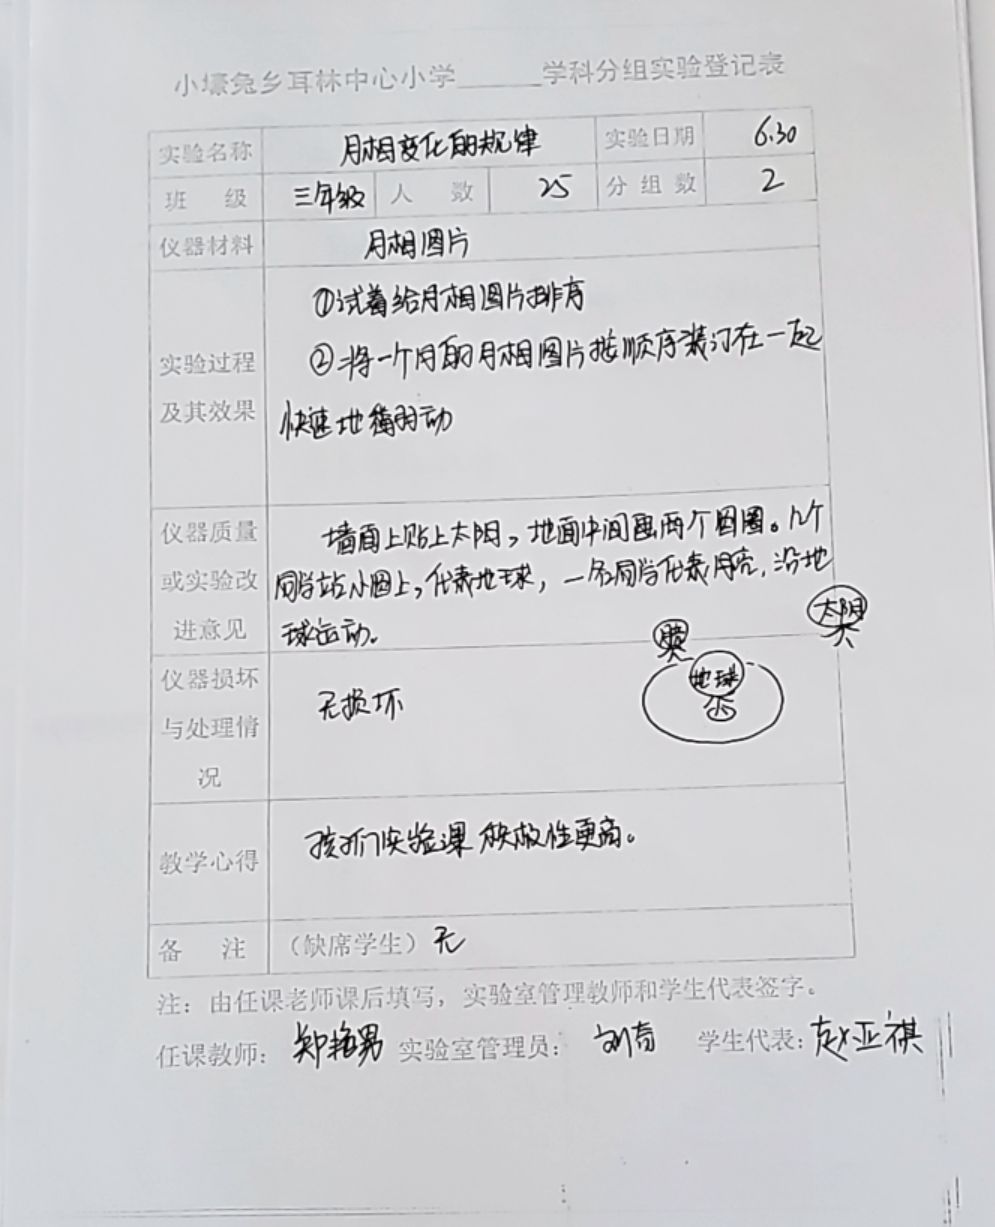 小壕兔乡耳林中心小学______学科分组实验登记表
实验名称 月相变化的规律 实验日期 6.30
班 级 三年级 人 数 25 分组数 2
仪器材料 月相图片
实验过程
及其效果
①试着给月相图片排序
②将一个月的月相图片按顺序装订在一起
快速地翻动
仪器质量
或实验改
进意见
墙面上贴上太阳,地面中间画两个圆圈。几个
同学站小圈上,代表地球,一名同学代表月亮,沿地
球运动。
太阳
地球
仪器损坏
与处理情
况
无损坏
教学心得
孩子们实验课积极性更高。
备 注 (缺席学生) 无
注:由任课老师课后填写,实验室管理教师和学生代表签字。
任课教师: 郑艳男 实验室管理员: 刘 学生代表: 赵亚祺